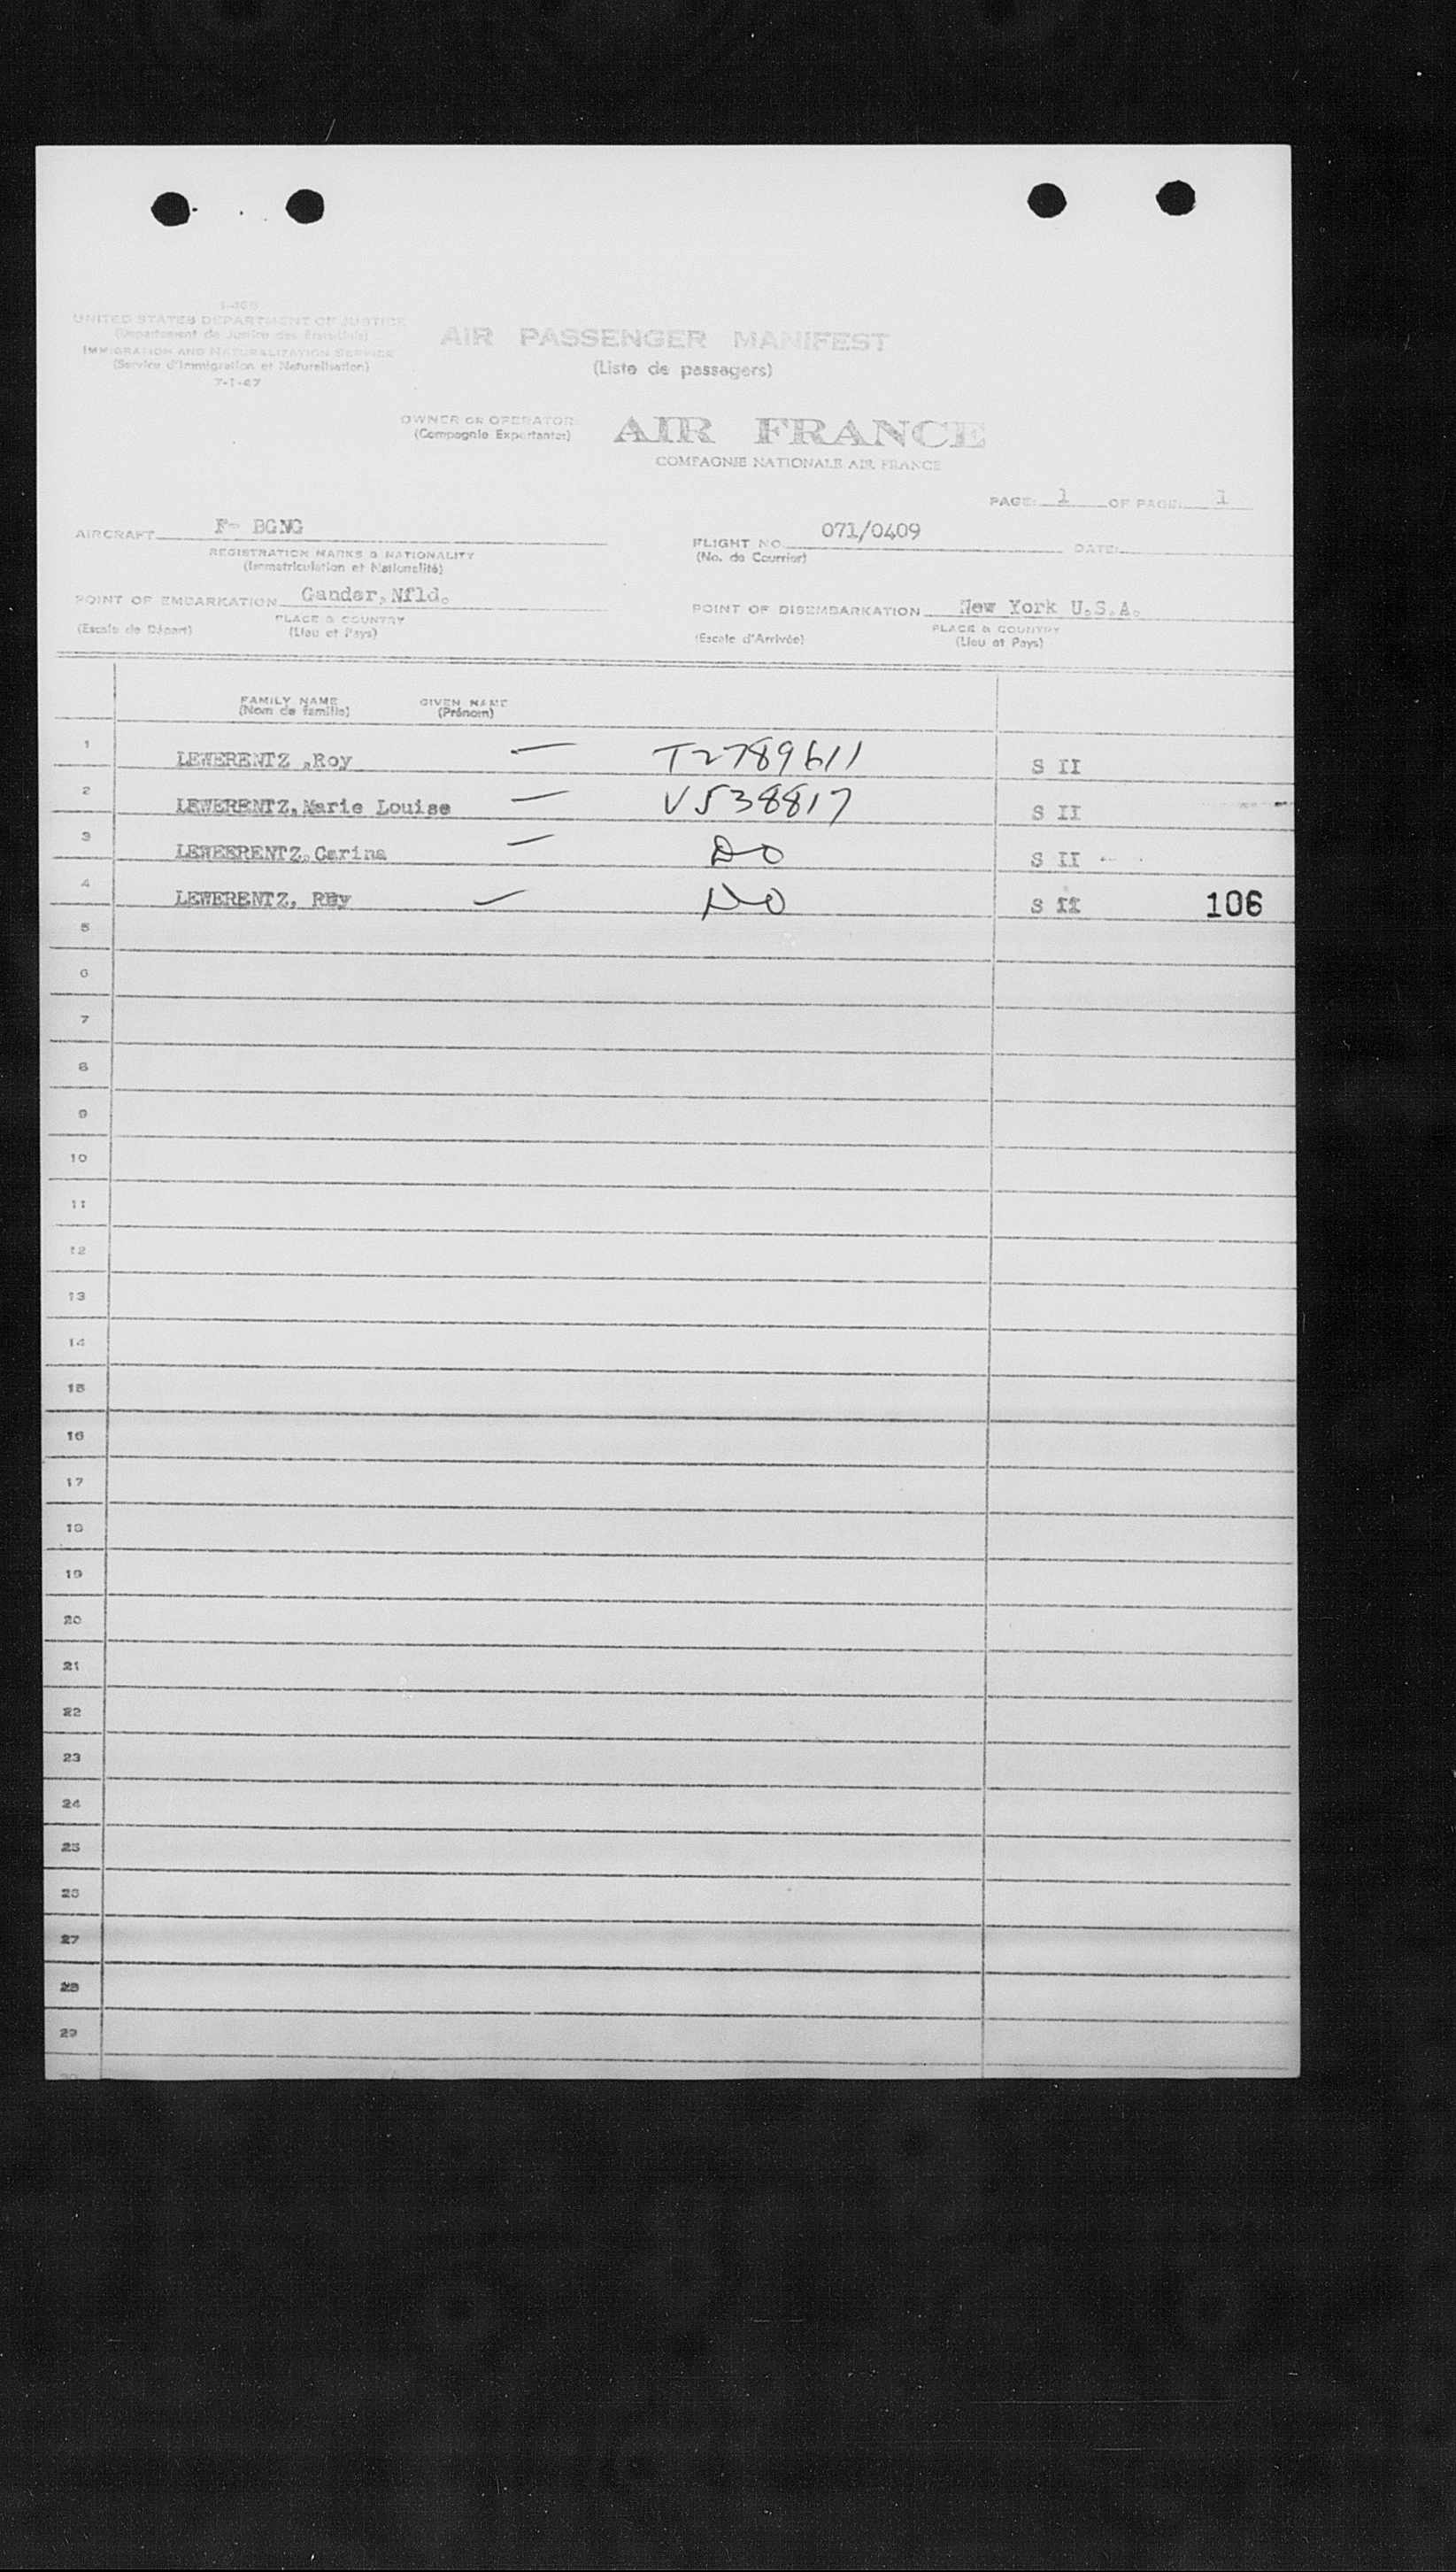 I-466
UNITED STATES DEPARTMENT OF JUSTICE
(Departement de Justice des Etats-Unis)
IMMIGRATION AND NATURALIZATION SERVICE
(Service d'Immigration et Naturalisation)
7-1-47
AIR PASSENGER MANIFEST
(Liste de passagers)
OWNER OR OPERATOR
(Compagnie Exportantes)
AIR FRANCE
COMPAGNIE NATIONALE AIR FRANCE
PAGE: 1 OF PAGE: 1
AIRCRAFT F- BGNG
REGISTRATION MARKS & NATIONALITY
(Immatriculation et Nationalité)
FLIGHT NO. 071/0409 DATE:
(No. de Courrier)
POINT OF EMBARKATION Gander, Nfld.
PLACE & COUNTRY
(Escale de Départ) (Lieu et Pays)
POINT OF DISEMBARKATION New York U.S.A.
PLACE & COUNTRY
(Escale d'Arrivée) (Lieu et Pays)
FAMILY NAME GIVEN NAME
(Nom de famille) (Prénom)
1 LEWERENTZ ,Roy — T2789611 S II
2 LEWERENTZ, Marie Louise — V538817 S II
3 LEWEERENTZ, Carina — DO S II
4 LEWERENTZ, — DO S II 106
5
6
7
8
9
10
11
12
13
14
15
16
17
18
19
20
21
22
23
24
25
26
27
28
29
30